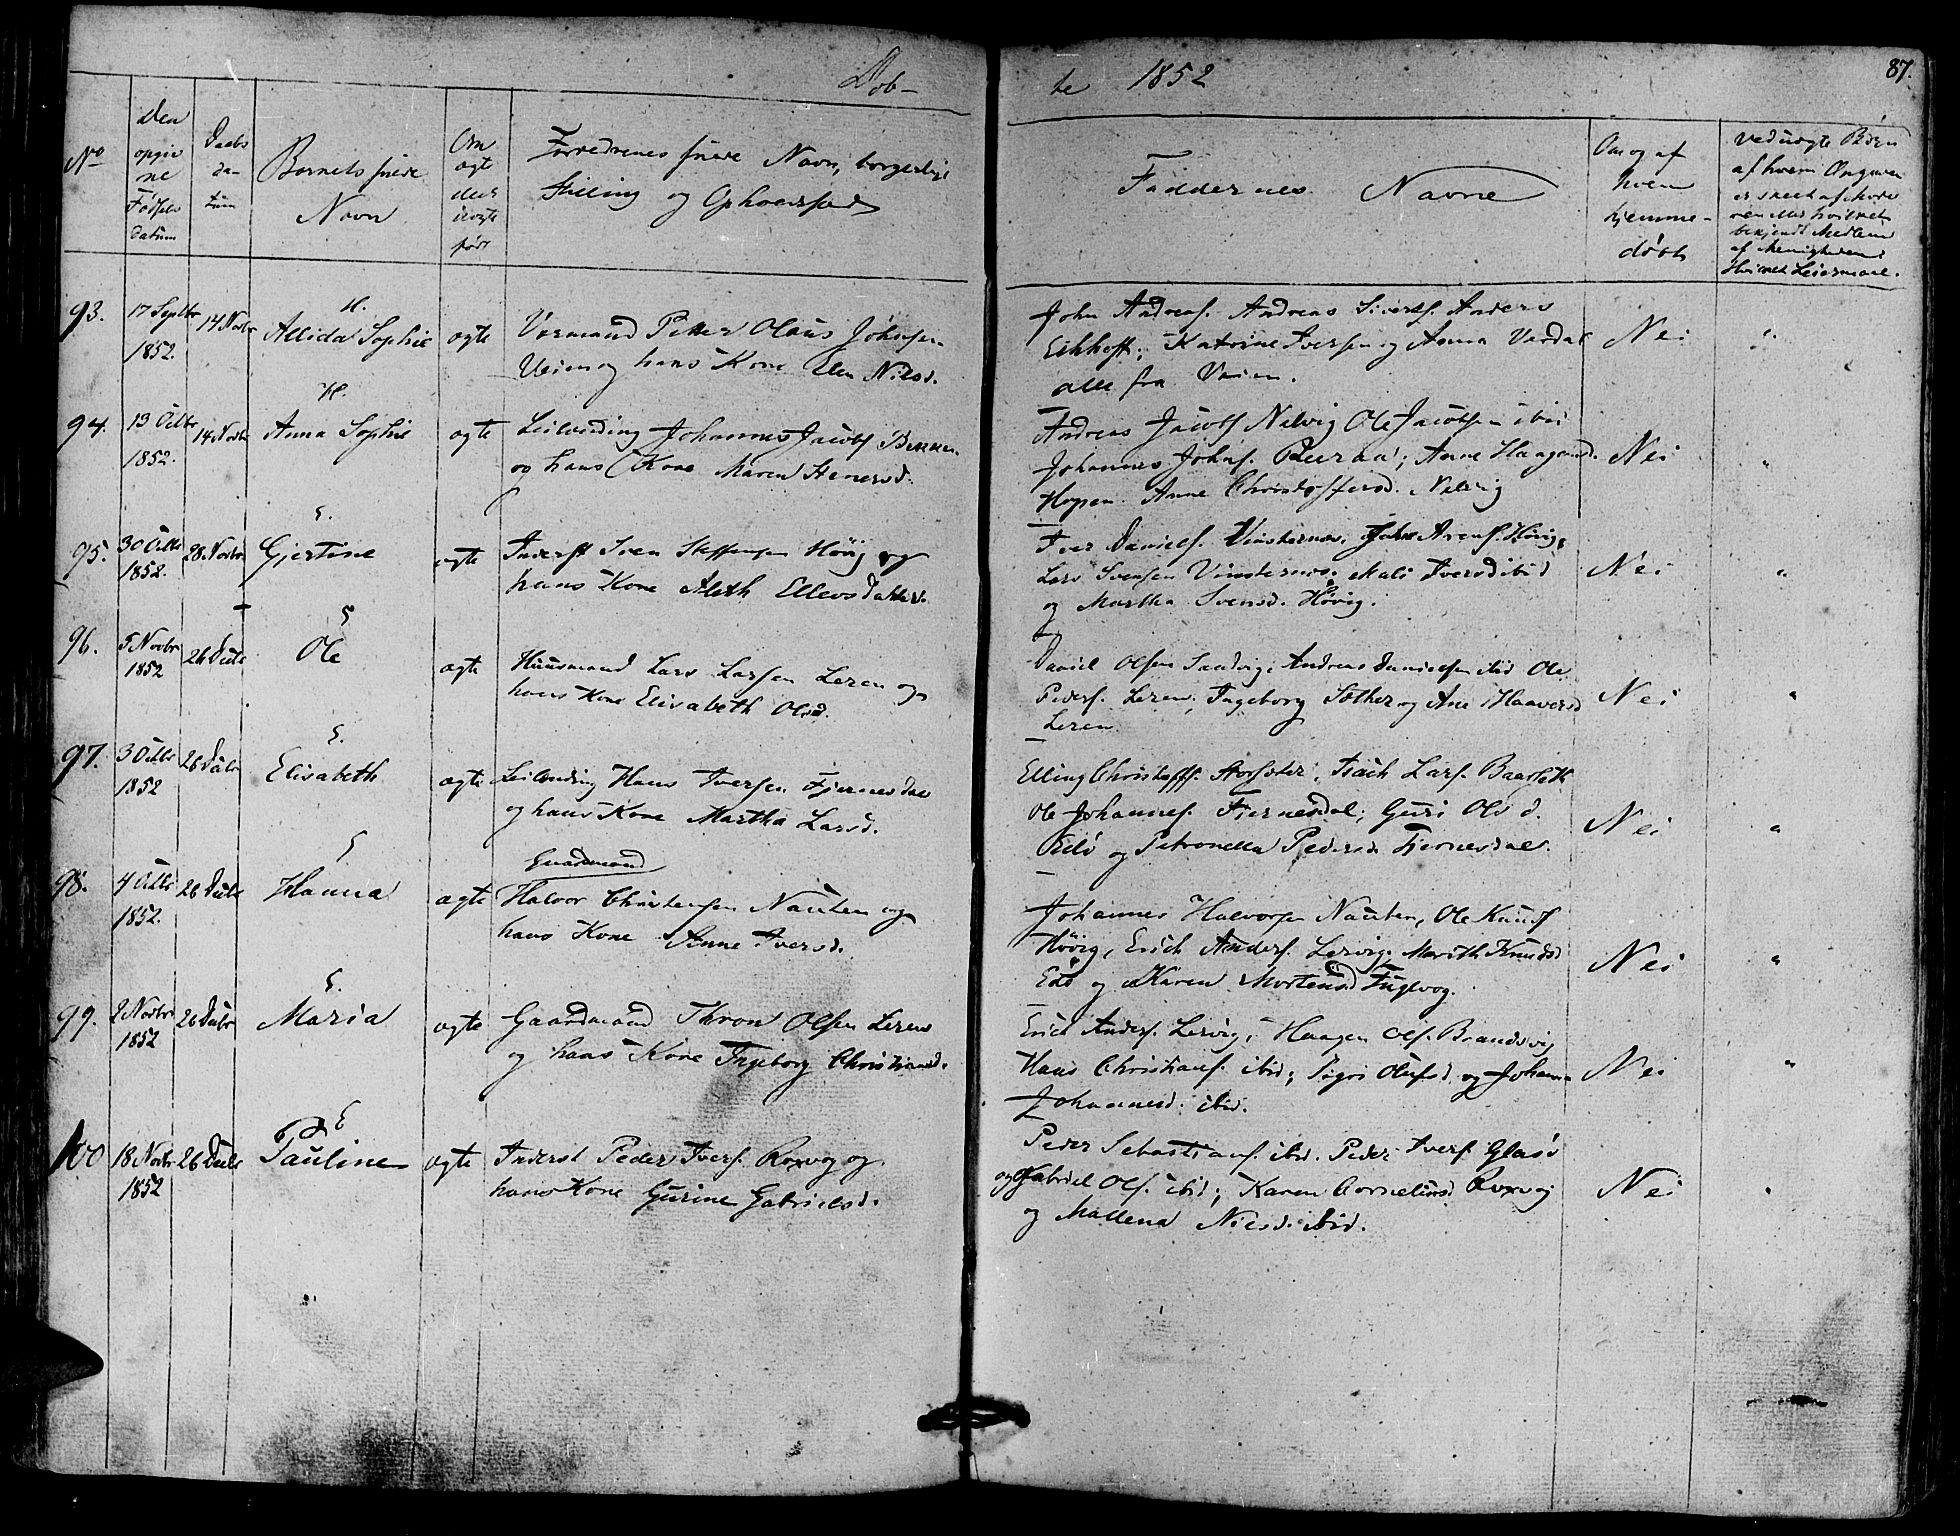 Døb-
te 1852
87.
No
Den
opgiv
ne
Fødsels
datum
Daabs
da-
tum
Barnets fulde
Navn
Om
ægte
eller
uægte
født
Forældrenes fulde Navn, borgerlige
Stilling og Opholdssted
Faddernes Navne
Om og af
hvem
hjemme-
døbt
Ved uægte Børn
af hvem Angivelsen
er skeet af Mode
ren eller hvilket
bekjendt Medlem
af Menigheden;
93. 17 Septbr 14 Novbr H.
1852. Allida Sophie ægte Petter Olaus Johnsen
Veien og hans Kone Elen Nilsd.
John Andreas. Andreas Siverts. Anders
Eikhoff; Katrine Iversen og Anna Vardal
alle fra Veien.
Nei "
94. 13 Octbr 14 Novbr H.
1852. Anna Sophie ægte Leilending Johannes Jacobs. Bekken
og hans Kone Maren Stenersd.
Andreas Jacobs. Nelvig Ole Jacobsen ibid
Johannes Johns. ; Anne Haagensd.
Hopen. Anne Christoffersd. Nelvig
Nei "
95. 30 Octbr 28 Novbr S.
1852. Gjertine ægte Inderst Sven Steffensen Høvig og
hans Kone Aleth Ellevsdatter.
Iver Daniels. Vinsternes, John Arens. Høvig,
Lars Svensen Vinsternes, Mali Iversd ibid
og Martha Svensd. Høvig.
Nei "
96. 5 Novbr 26 Decbr S
1852 Ole ægte Huusmand Lars Larsen Leren og
hans Kone Elisabeth Olsd.
Daniel Olsen Sandvig, Andreas Danielsen ibid Ole
Peders. Leren, Ingeborg Sæther og Ane Haaversd
Leren.
Nei "
97. 3 Octbr 26 Decbr S.
1852 Elisabeth ægte Leilending Hans Iversen Fjernesdal
og hans Kone Martha Larsd.
Elling Christoffs. Storsæter, Isach Lars. Baarseth
Ole Johannes. Fjernesdal; Guri Olsd.
Edø og Petronella Pedersd. Fjernesdal.
Nei "
98. 4 Octbr 26 Decbr S
1852. Hanna ægte Gaardmand
Halvor Christensen Nausten og
hans Kone Anne Iversd.
Johannes Halvorsen Nausten, Ole Knuds.
Høvig, Erich Anders. Lervig, Marith Knudsd
Edø og Karen Mortensd Fuglvog.
Nei "
99. 2 Novbr 26 Decbr S.
1852 Maria ægte Gaardmand Thron Olsen Leren
og hans Kone Ingeborg Christiansd.
Erich Anders. Lervig, Haagen Ols. Brandsvig
Hans Christians. ibid; Sigri Olufsd. og Johanna
Johannesd. ibid.
Nei "
100 18 Novbr 26 Decbr S
1852 Pauline ægte Inderst Peder Ivers. Roxvog og
hans Kone Gurine Gabrielsd.
Peder Sebastians. ibid. Peder Ivers. Glasø
og Gabriel Ols. ibid; Karen Corneliusd Roxvog
og Mallena Nielsd. ibid.
Nei "